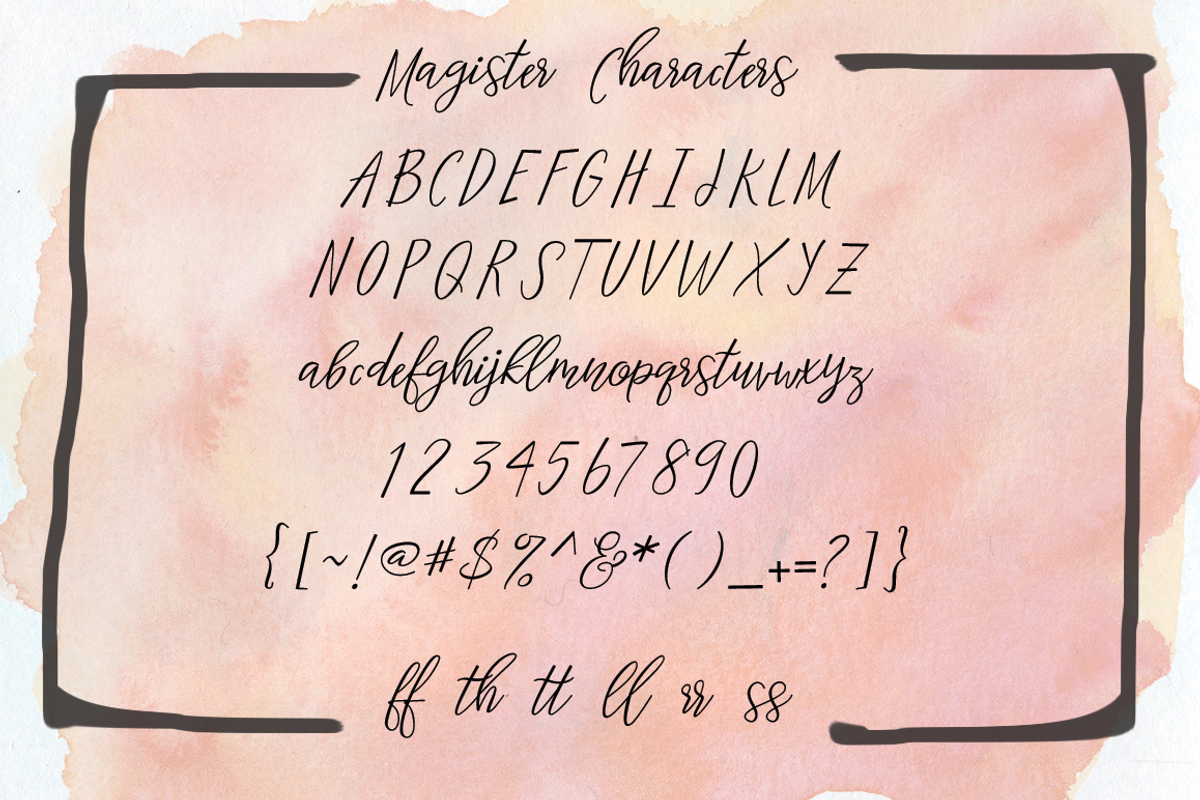 Magister Characters
ABCDEFGHIJKLM
NOPQRSTUVWXYZ
abcdefghijklmnopqrstuvwxyz
1234567890
{[~!@#$%^&*()_+=?]}
ff th tt ll rr ss